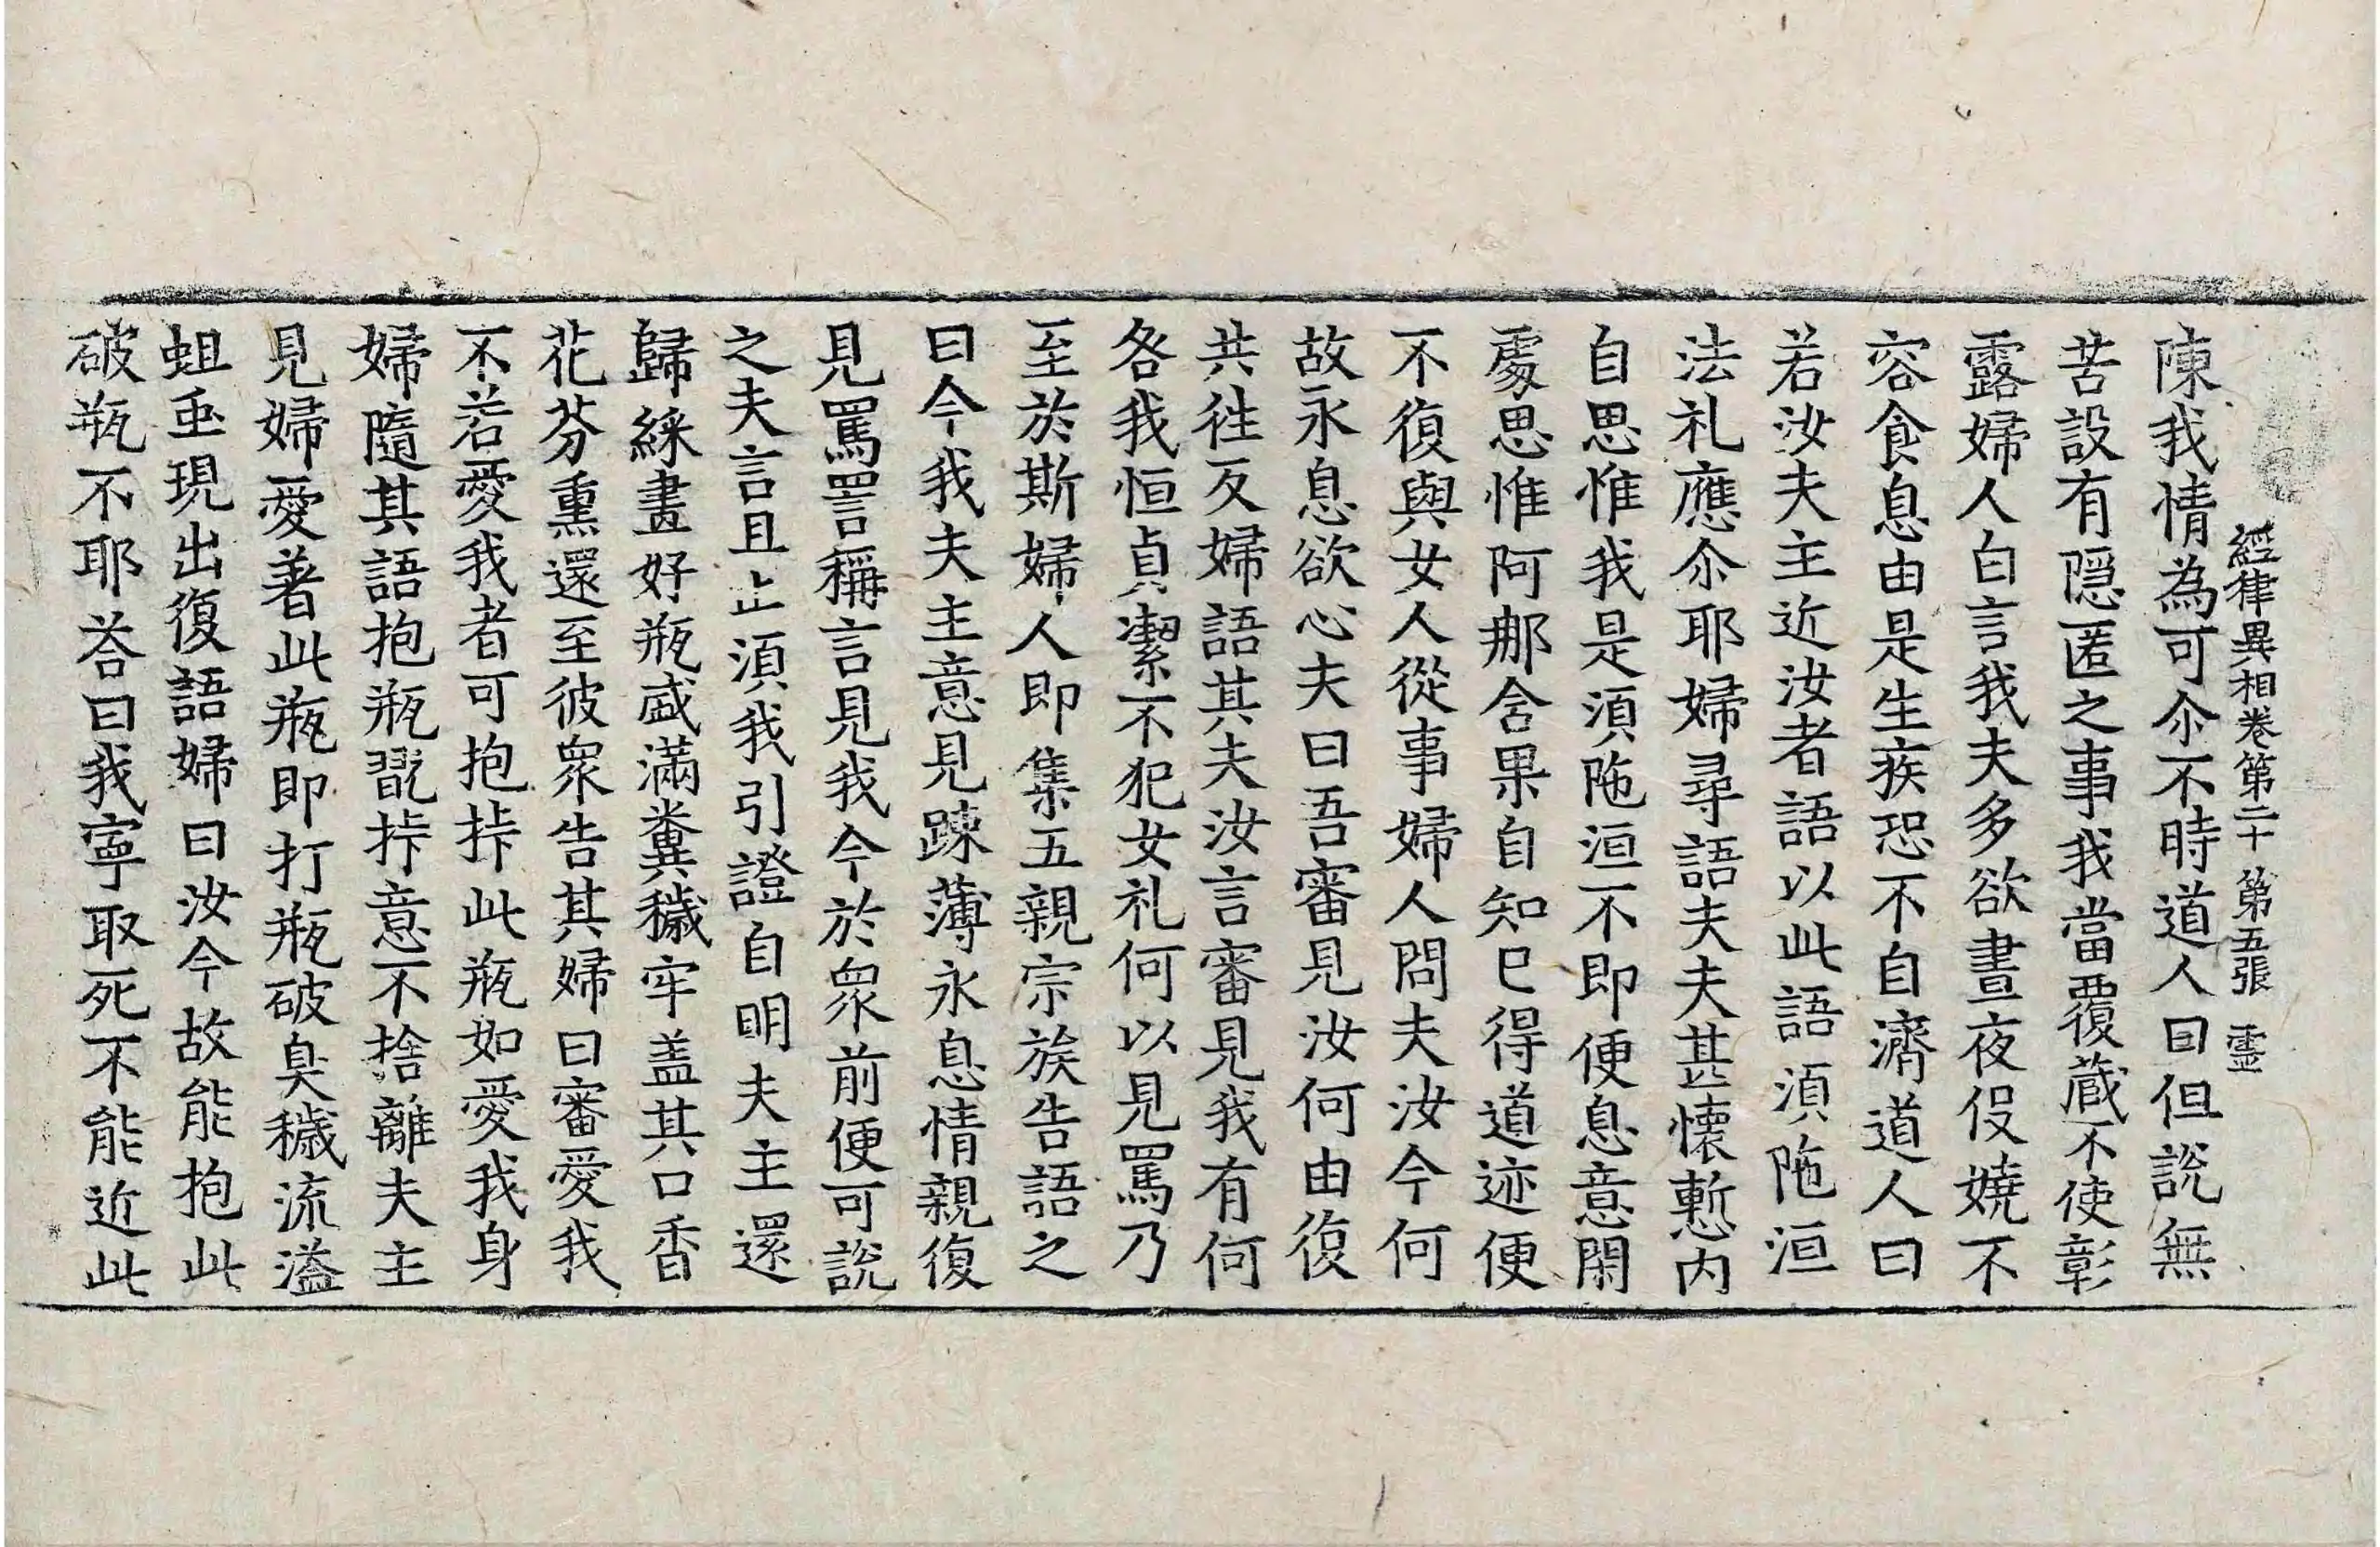 經律異相卷第二十 第五張 霊
陳我情為可尒不時道人曰但說無
苦設有隱匿之事我當覆蔵不使彰
露婦人白言我夫多欲晝夜伇嬈不
容食息由是生疾恐不自濟道人曰
若汝夫主近汝者語以此語湏陁洹
法礼應尒耶婦尋語夫夫甚懷慙内
自思惟我是湏陁洹不即便息意閑
處思惟阿那含果自知已得道迹便
不復與女人從事婦人問夫汝今何
故永息欲心夫曰吾審見汝何由復
共往反婦語其夫汝言審見我有何
咎我恒貞潔不犯女礼何以見罵乃
至於斯婦人即集五親宗族告語之
曰今我夫主意見踈薄永息情親復
見罵詈稱言見我今於衆前便可說
之夫言且止湏我引證自明夫主還
歸綵畫好瓶盛滿糞穢牢盖其口香
花芬熏還至彼衆告其婦曰審愛我
不若愛我者可抱㧗此瓶如愛我身
婦隨其語抱瓶翫㧗意不捨離夫主
見婦愛著此瓶即打瓶破臭穢流溢
蛆䖝現出復語婦曰汝今故能抱此
破瓶不耶荅曰我寧取死不能近此